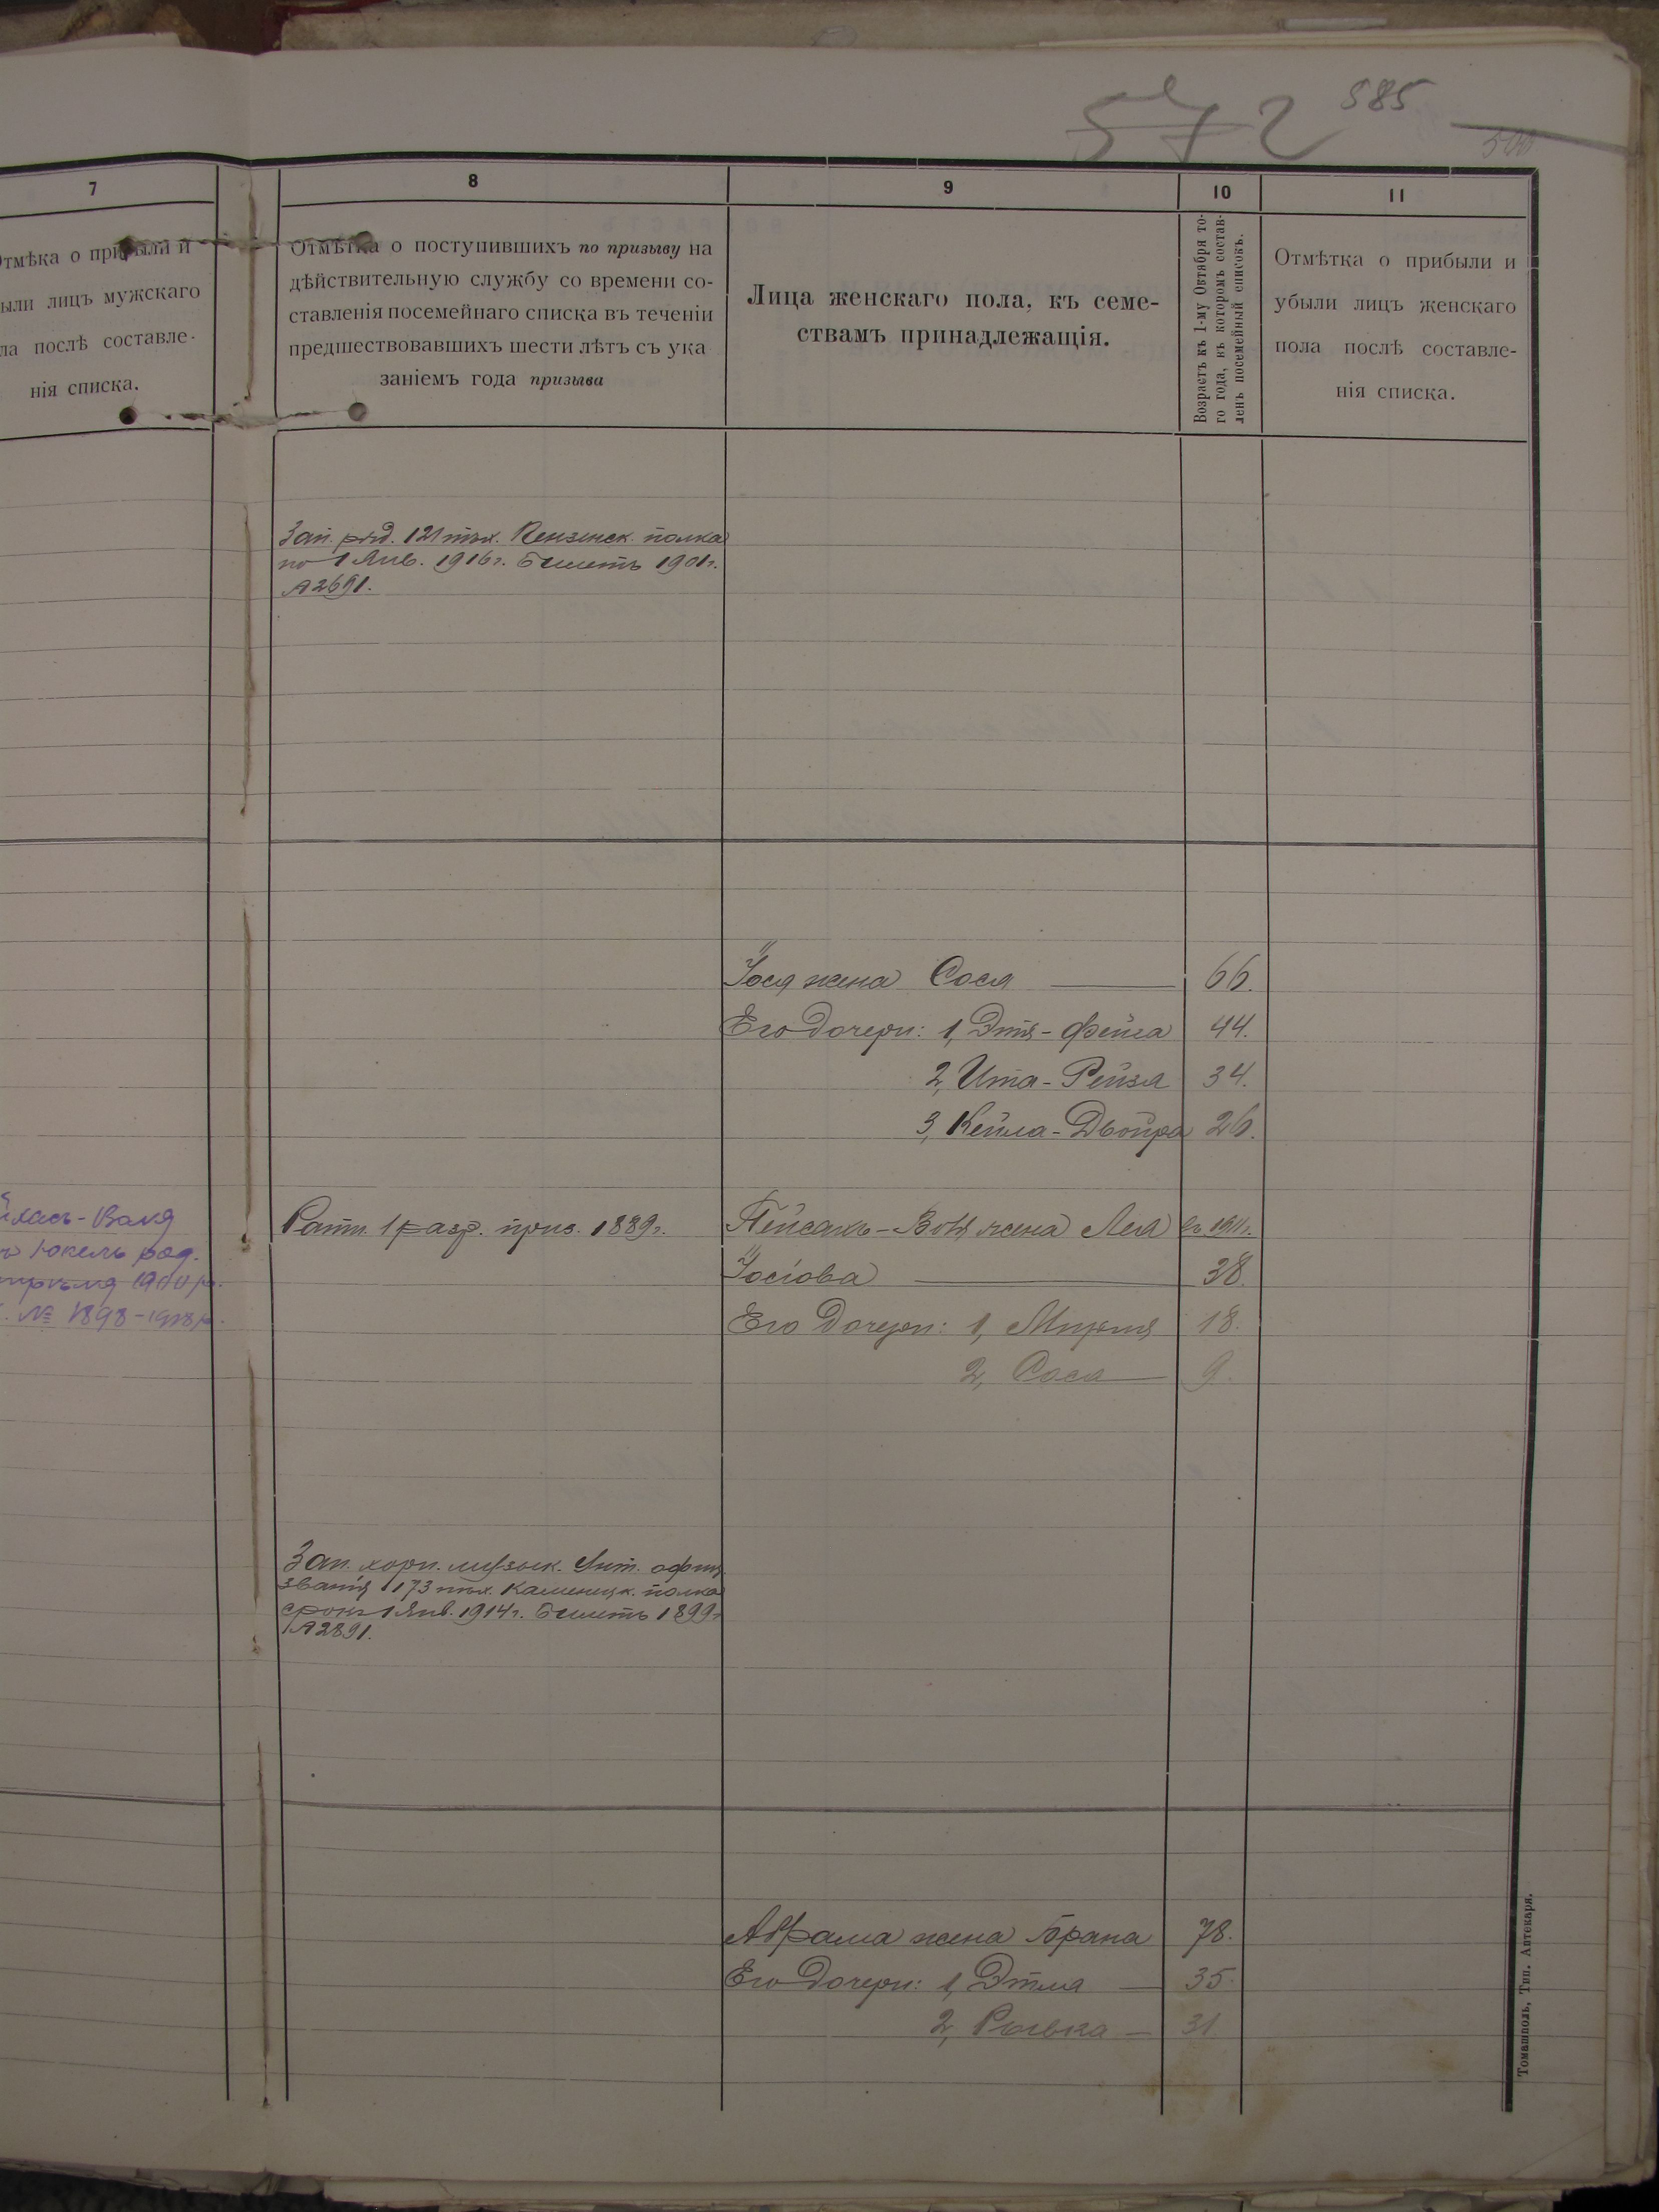 572 585
500
7
8
9
10
11
Отмѣка о прибыли и
были лицъ мужскаго
ла послѣ составле-
нія списка.
Отмѣтка о поступившихъ по призыву на
дѣйствительную службу со времени со-
ставленія посемейнаго списка въ теченіи
предшествовавшихъ шести лѣтъ съ ука
заніемъ года призыва
Лица женскаго пола, къ семе-
ствамъ принадлежащія.
Возрастъ къ 1-му Октября то-
го года, въ которомъ состав-
ленъ посемейный списокъ.
Отмѣтка о прибыли и
убыли лицъ женскаго
пола послѣ составле-
нія списка.
Зап. ряд. 121 пѣх. Пензенск. полка
по 1 Янв. 1916 г. Билетъ 1901 г.
№ 2691.
Іося жена Сося 66.
Его дочери: 1, Этя-Фейга 44.
2, Ита-Рейзя 34.
3, Кейла-Двойра 26.
Юкель род.
1900 г.
№ 1898-1908 г.
Ратн. 1 разр. приз. 1889 г.
Пейсахъ-Волья жена Лея въ 1911 г.
Іосіова 38.
Его дочери: 1, Мирля 18.
2, Сося 9.
Зап. хорн. музык. Унт. офиц.
званія 173 пѣх. Каменецк. полка
срокъ 1 Янв. 1914 г. Билетъ 1899 г.
№ 2891.
Абрама жена Брана 78.
Его дочери: 1, Этля 35.
2, Рывка 31.
Томашполь, Тип. Аптекаря.